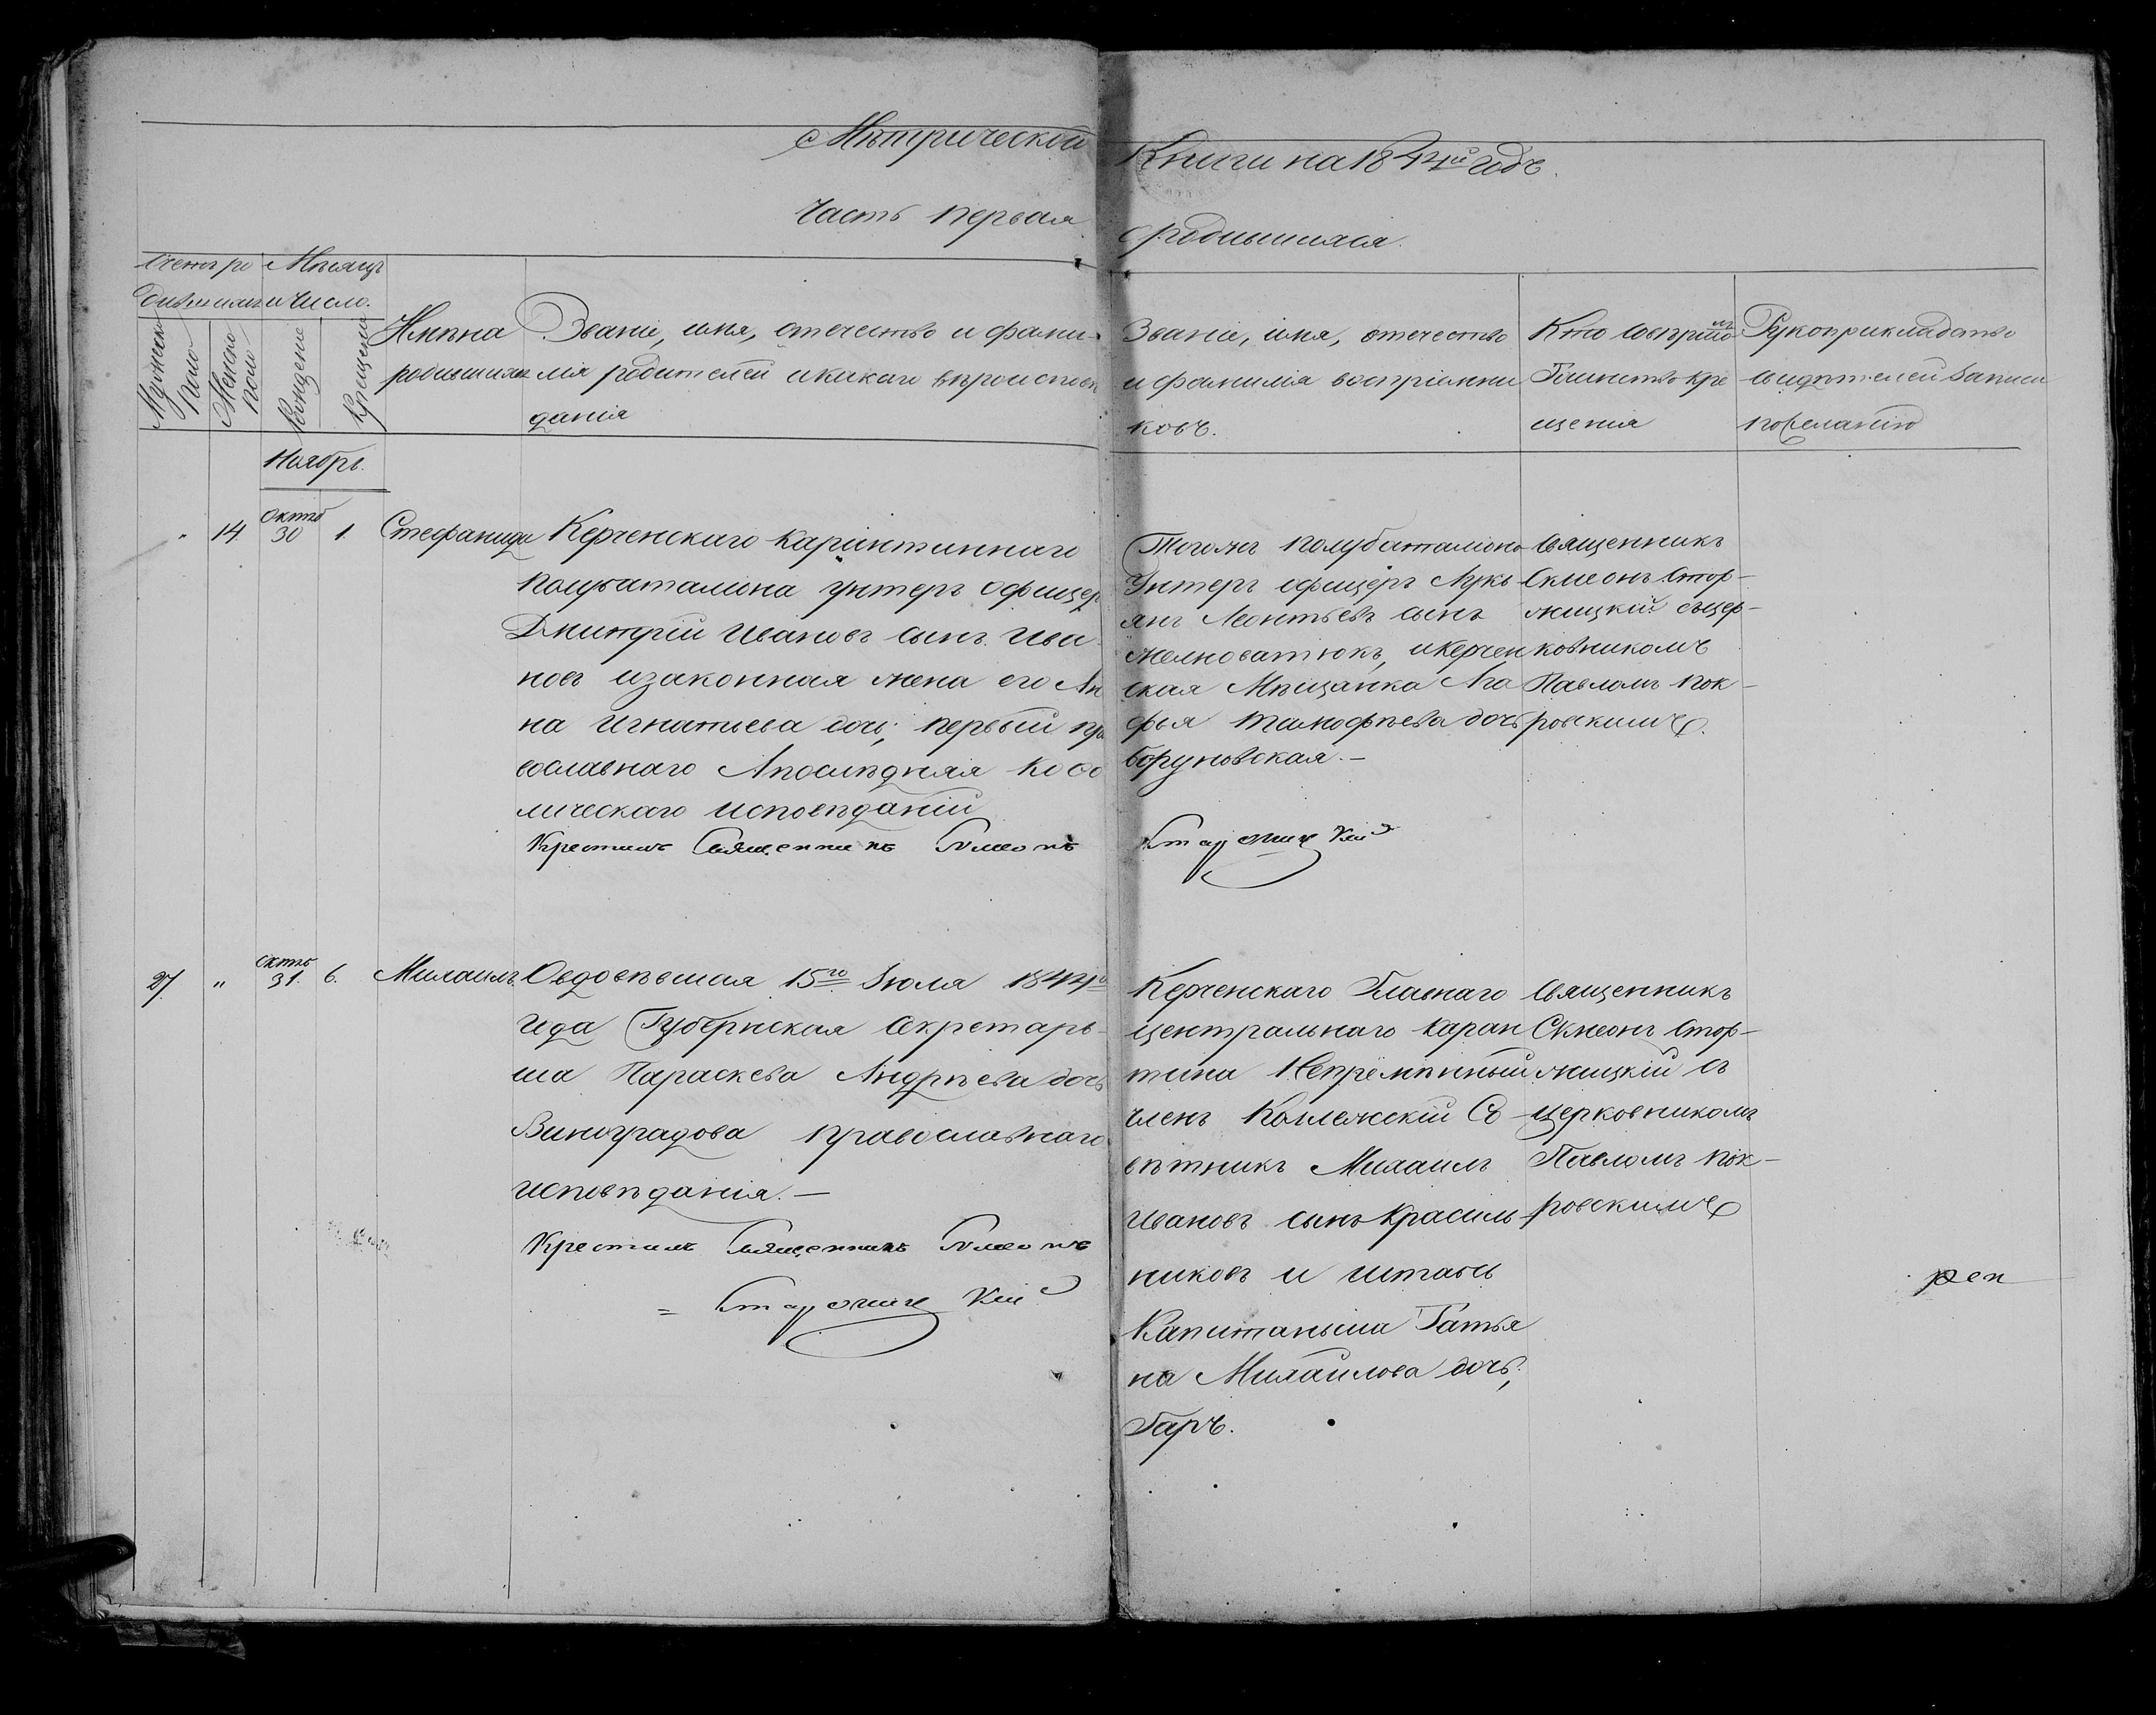 Метрической Книги на 1844й годъ.
Часть первая о родившихся.
Счетъ ро
дившихся
Мѣсяцъ
и число.
Мужеска
пола
Женска
пола
Рождения
Крещения
Имяна
родившихся
Званіе, имя, отечество и фами-
лія родителей и какаго вѣроисповѣ
данія
Званіе, имя, отечество
и фамилія воспріемни
ковъ.
Кто совершалъ
Таинство кре
щенія
Рукоприкладство
свидѣтелей записи
по желанію
Ноябрь.
14. Октяб 30 1. Стефанида
Керченскаго карантиннаго
полубаталіона унтеръ офицер
Дмитрій Ивановъ сынъ Ива
новъ и законная жена его Ан
на Игнатьева дочь; первый пра
вославнаго а послѣдняя като
лическаго исповѣданій
Крестилъ Священникъ Симеонъ
Сторжицкій
Того жъ полубаталіона
Унтеръ офицеръ Лукь
янъ Леонтьевъ сынъ
Желноватюкъ, и Керчен
ская Мѣщанка Ага
фья Тимофѣева дочь
Боруновская.-
Священникъ
Симеонъ Стор-
жицкій съ цер-
ковникомъ
Павломъ Пок-
ровскимъ.
27. " Октяб 31. 6. Михаилъ.
Овдовѣвшая 15го Іюля 1844
года Губернская Секретарь-
ша Параскева Андрѣева дочь
Виноградова православнаго
исповѣданія.-
Крестилъ Священникъ Симеонъ
= Сторжицкій
Керченскаго Главнаго
центральнаго каран
тина Непремѣнный
членъ Коллежскій Со
вѣтникъ Михаилъ
Ивановъ сынъ Красиль
никовъ и штабсъ
Капитанша Татья
на Михайлова дочь;
Гаръ.
Священникъ
Симеонъ Стор-
жицкій съ
церковникомъ
Павломъ Пок-
ровскимъ